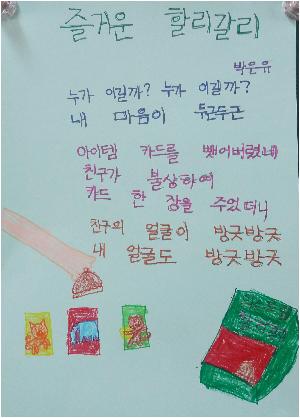 즐거운 할리갈리
박은유
누가 이길까? 누가 이길까?
내 마음이 두근두근
아이템 카드를 뺏어버렸네
친구가 불상하여
카드 한 장을 주었더니
친구의 얼굴이 방긋방긋
내 얼굴도 방긋방긋